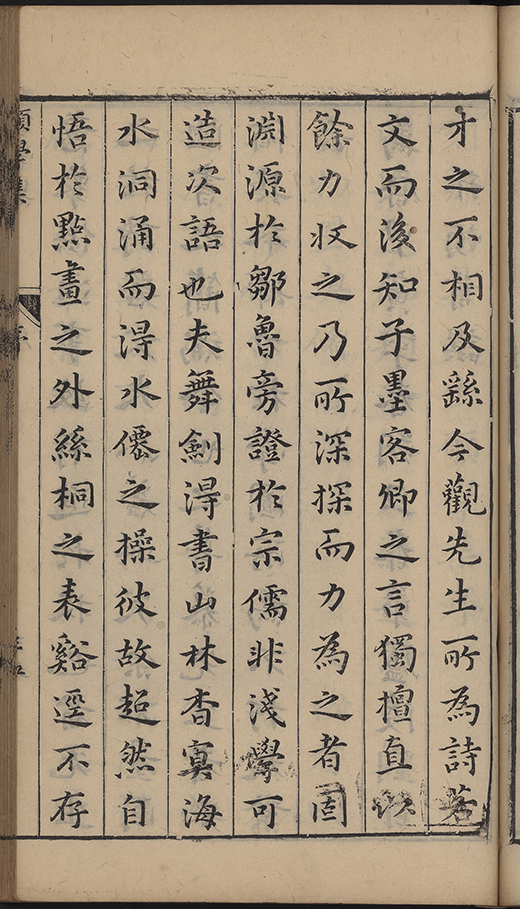 才之不相及繇今觀先生所為詩若
文而後知子墨客卿之言獨擅直以
餘力收之乃所深探而力為之者固
淵源於鄒魯旁證於宗儒非淺學可
造次語也夫舞劍得書山林杳冥海
水洞涌而得水僊之操彼故超然自
悟於點畫之外絲桐之表谿逕不存
學集
序